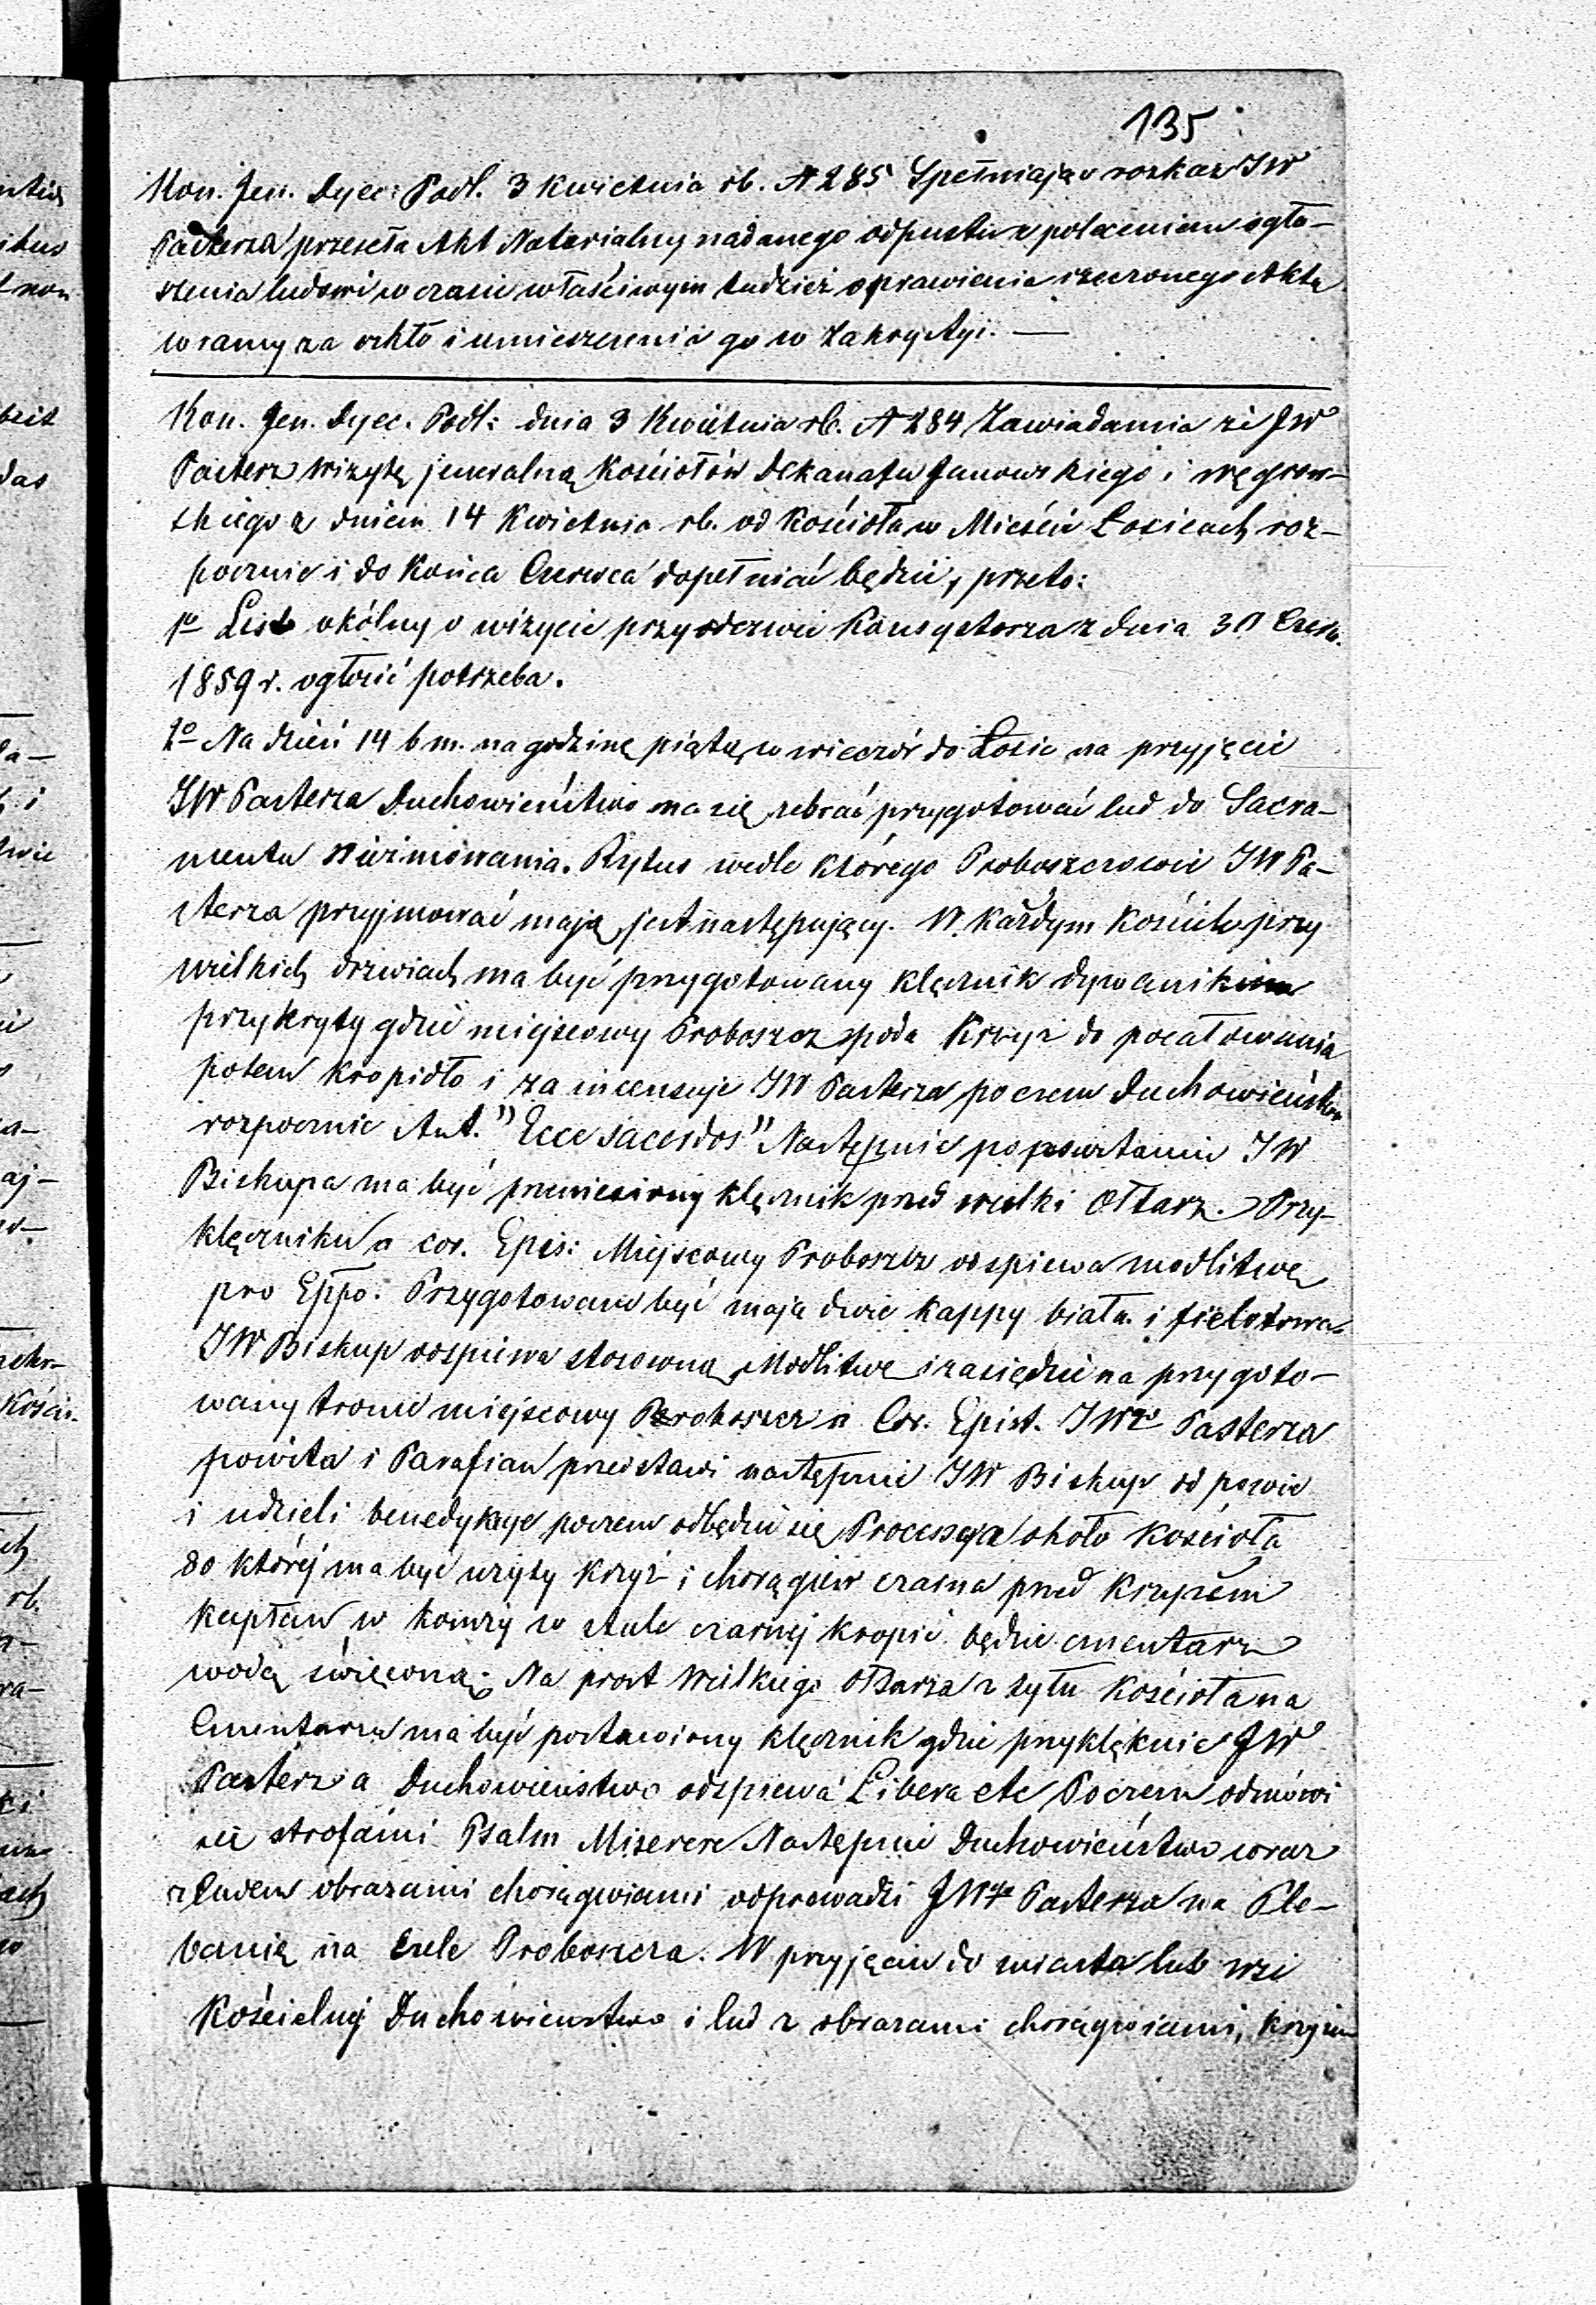 135
Kon. Jen. Dyec: Podl. 3 Kwietnia rb. N 285 Spełniając rozkaz JW
Pasterza przeseła Akt Notarialny nadanego odpustu z poleceniem ogło-
szenia ludowi w czasie właściwym tudzież oprawienia rzeczonego Aktu
w ramy za szkło i umieszczenia go w Zakrystyi. —
Kon. Jen. Dyec. Podl: dnia 3 Kwietnia rb. N 284 Zawiadamia że JW
Pasterz Wizytę jeneralną Kościołów Dekanatu Janowskiego i węgrow-
skiego z dniem 14 Kwietnia rb. od Kościoła w Mieście Łosicach roz-
pocznie i do Końca Czerwca dopełniać będzie, przeto:
1º List okólny o wizycie przy odezwie Konsystorza z dnia 30 Czerw.
1859 r. ogłosić potrzeba.
2º Na dzień 14 b m. na godzinę piątą w wieczór do Łosic na przyjęcie
JW Pasterza Duchowieństwo ma się zebrać przygotować lud do Sacra-
mentu Bierzmowania. Rytus wedle którego Proboszczowie JW Pa-
sterza przyjmować mają jest następujący. W każdym Kościele przy
wielkich drzwiach ma być przygotowany klęcznik dywanikiem
przykryty gdzie miejscowy Proboszcz poda Krzyż do pocałowania
potem kropidło i za incensuje JW Pasterza poczem Duchowieństwo
rozpocznie Ant. "Ecce sacerdos" Następnie po powstaniu JW
Biskupa ma być przeniesiony klęcznik przed wielki Ołtarz. Przy
klęczniku a cor. Epis: Miejscowy Proboszcz odspiewa modlitwę
pro Eppo. Przygotowane być mają dwie kappy biała i fioletowa
JW Biskup odspiewa stosowną Modlitwę i zasiędzie na przygoto-
wany tronie miejscowy Proboszcz a Cor. Epist. JWgo Pasterza
powita i Parafian przedstawi następnie JW Biskup odpowie
i udzieli benedykcye poczem odbędzie się Processya około Kościoła
do której ma być użyty Krzyż i chorągiew czarna przed Krzyżem
kapłan w komży w stule czarnej kropić będzie cmentarz
wodą święconą. Na prost Wielkiego Ołtarza z tyłu Kościoła na
Cmentarzu ma być postawiony klęcznik gdzie przyklęknie JW
Pasterz a Duchowieństwo odspiewa Libera etc Poczem odmówi
się strofami Psalm Miserere Następnie Duchowieństwo wraz
z ludem obrazami chorągwiami odprowadzi JWgo Pasterza na Ple-
banię na czele Proboszcza. W przyjęciu do miasta lub wsi
Kościelnej Duchowieństwo i lud z obrazami chorągwiami, krzyżem